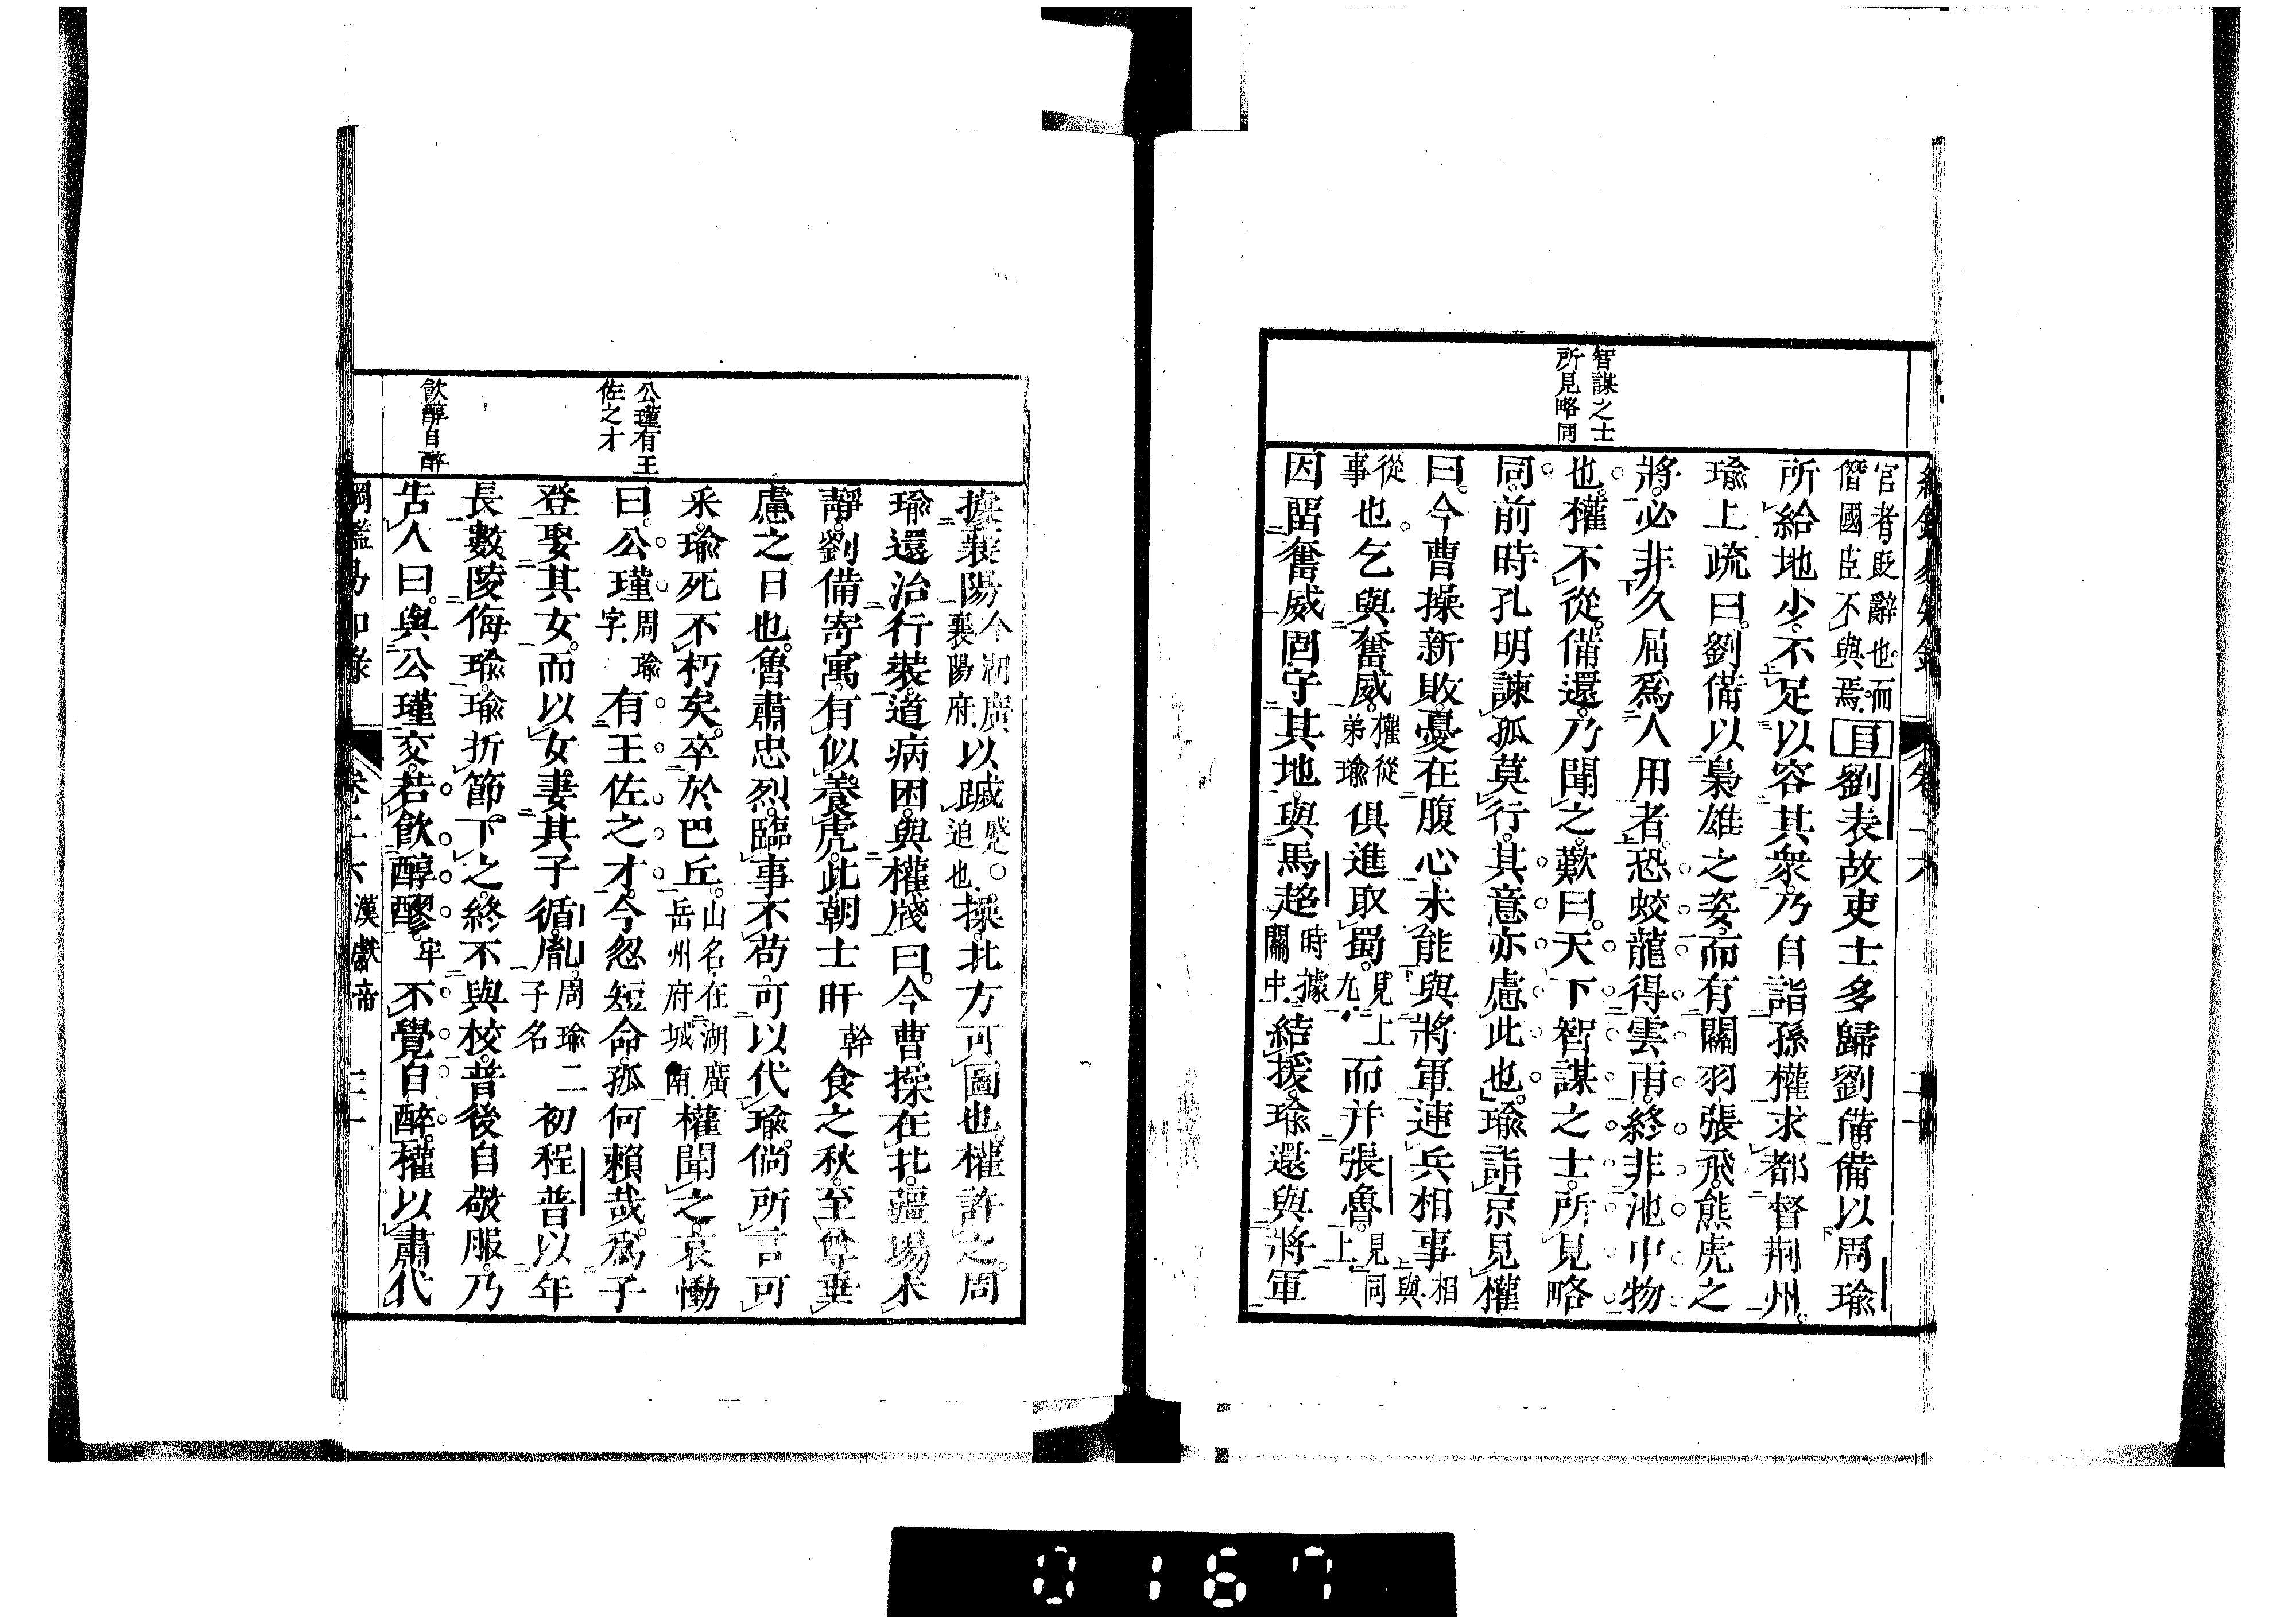 智謀之士
所見略同
官者貶辭也而
僭國臣不與焉
目劉表故吏士多歸劉備備以周瑜
所給地少不足以容其衆乃自詣孫權求都督荊州
瑜上疏曰劉備以梟雄之姿而有關羽張飛熊虎之
將必非久屈爲人用者恐蛟龍得雲雨終非池中物
也權不從備還乃聞之歎曰天下智謀之士所見略
同前時孔明諫孤莫行其意亦慮此也瑜詣京見權
曰今曹操新敗憂在腹心未能與將軍連兵相事相
與
從
事也乞與奮威權從
弟瑜俱進取蜀見上
九而并張魯見
上同
因留奮威固守其地與馬超時據
關中結援瑜還與將軍
公瑾有王
佐之才
飮醇自醉
據襄陽今湖廣
襄陽府以蹙感
迫也操北方可圖也權許之周
瑜還治行裝道病困與權牋曰今曹操在北疆場未
靜劉備寄寓有似養虎此朝士旰幹食之秋至尊垂
慮之日也魯肅忠烈臨事不苟可以代瑜倘所言可
采瑜死不朽矣卒於巴丘山名在湖廣
岳州府城南權聞之哀慟
曰公瑾周瑜
字有王佐之才今忽短命孤何賴哉爲子
登娶其女而以女妻其子循胤周瑜二
子名初程普以年
長數陵侮瑜瑜折節下之終不與校普後自敬服乃
告人曰與公瑾交若飮醇醪牢不覺自醉權以肅代
綱鑑易知錄 卷二六 漢獻帝
0167